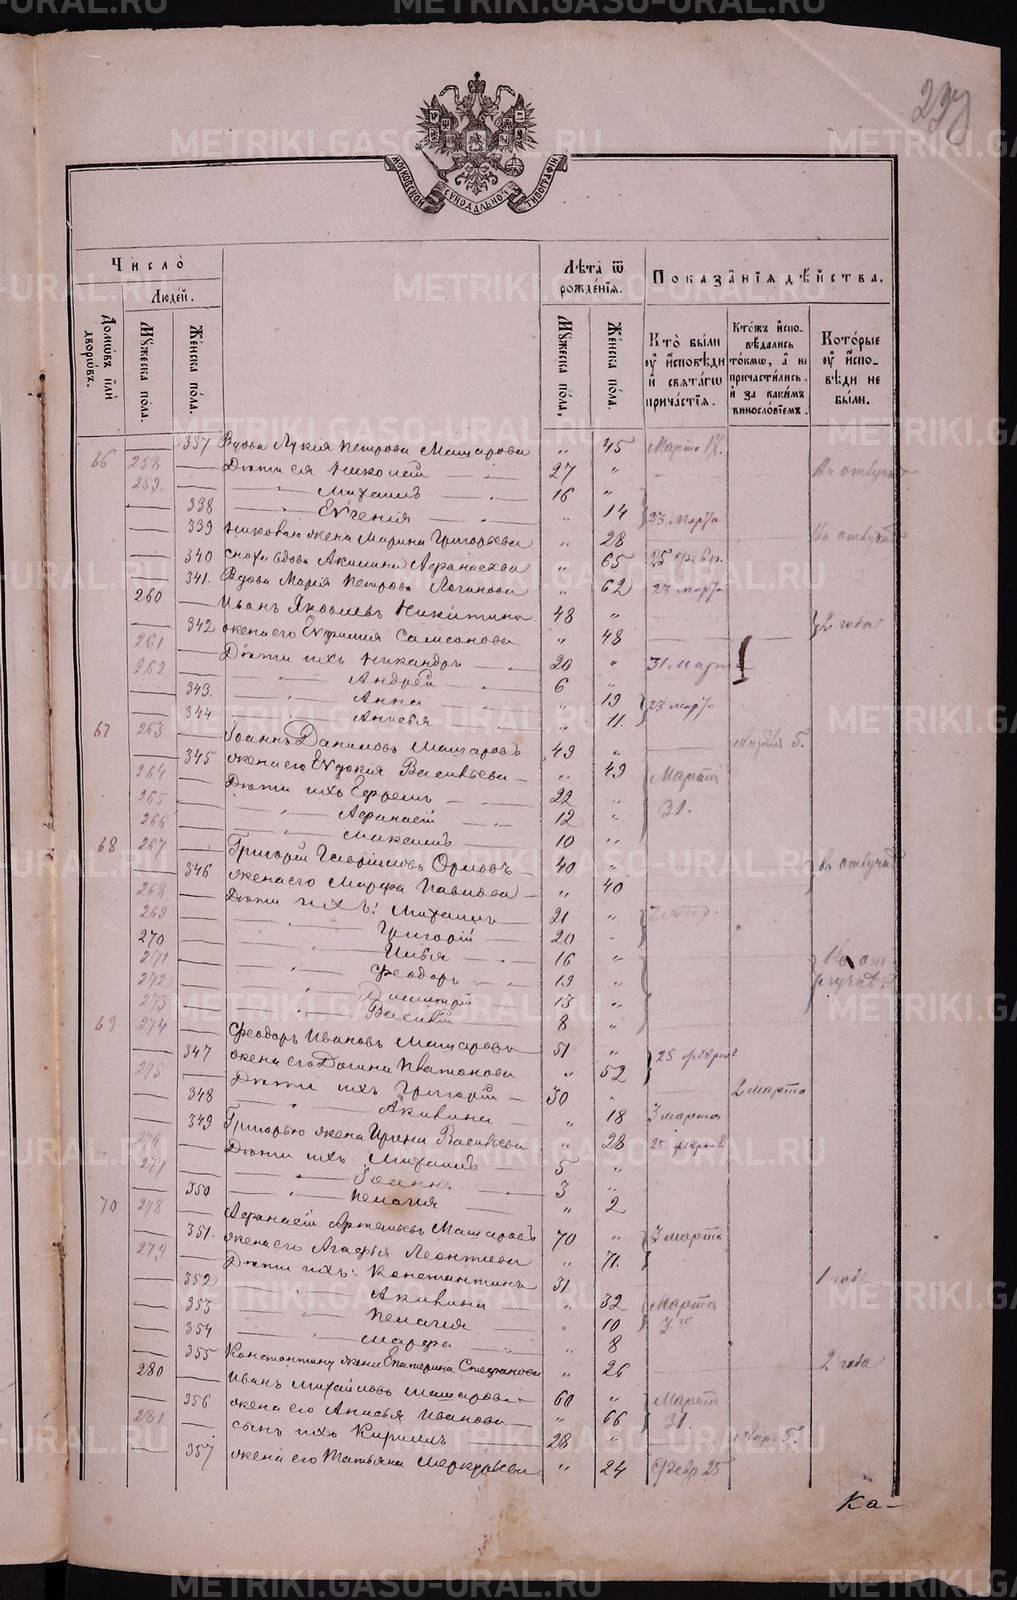 METRIKI.GASO-URAL.RU
227
МОСКОВСКОЙ СѴНОДАЛЬНОЙ ТИПОГРАФІИ
Число
Людей.
Домовъ или дворовъ.
Мужеска пола.
Женска пола.
Лѣта ѿ рожденія.
Мужеска пола.
Женска пола.
Показанія дѣйства.
Кто были у исповѣди и святаго причастія.
Ктожъ исповѣдались токмо, а не причастились, и за какимъ винословіемъ.
Которые у исповѣди не были.
337 Вдова Лукія Петрова Машарова „ 45 Марта 17.
66 258 Дѣти ея Николай 27 „ Въ отлучк
259. „ Михаилъ 16 „
338 „ Евгенія „ 14 23 марта
339 Николаю жена Марина Григорьева „ 28 Въ отлучк
340 сноха вдова Акилина Афанасьева „ 65 25 февр.
341. Вдова Марія Петрова Логинова „ 62 23 марта
260 Иванъ Яковлевъ Никитинъ 48 „ 2 года
342 жена его Евфимія Самсонова „ 48
261 Дѣти ихъ Никандръ 20 „ 31. Марта
262 „ Андрей 6 „
343. „ Анна „ 19 23 марта
344 „ Анисья „ 11.
67 263 Іоаннъ Даниловъ Машаровъ 49 „ Апрѣля 5.
345 жена его Евдокія Васильева „ 49 Марта
264 Дѣти ихъ Ефремъ 22 „ 31.
265 „ Афанасій 12 „
266 „ Максимъ 10 „
68 267 Григорій Гавриловъ Орловъ 40 „ въ отлучк
346 жена его Марфа Павлова „ 40
268 Дѣти ихъ: Михаилъ 21 „
269 „ Григорій 20
270 „ Илья 16 „ Въ от
271 „ Феодоръ 19 „ лучкѣ
272 „ Димитрій 13 „
273 „ Василій 8 „
69 274 Феодоръ Ивановъ Машаровъ 51 „ 25 февраля
347 жена его Домна Платонова „ 52
275 Дѣти ихъ Григорій 30 „ 2 марта
348 „ Акилина „ 18 3 марта
349 Григорью жена Ирина Васильева „ 28 25 феврал
276 Дѣти ихъ Михаилъ 5 „
277 „ Іоаннъ 3 „
350 „ Пелагія „ 2
70 278 Афанасій Артемьевъ Машаровъ 70 „ 3 марта
351. жена его Агафья Леонтьева „ 71.
279 Дѣти ихъ: Константинъ 31 1 годъ
352 „ Акилина „ 32 Марта
353 „ Пелагія „ 10 3го
354 „ Марфа „ 8
355 Константину жена Екатерина Стефанова „ 26 2 года
280 Иванъ Михайловъ Машаровъ 60 „ Марта
356 жена его Анисья Иванова „ 66 31.
281 сынъ ихъ Кириллъ 28 „ Апр. 5.
357 жена его Татьяна Меркурьева „ 24 Февр 25
Ка-